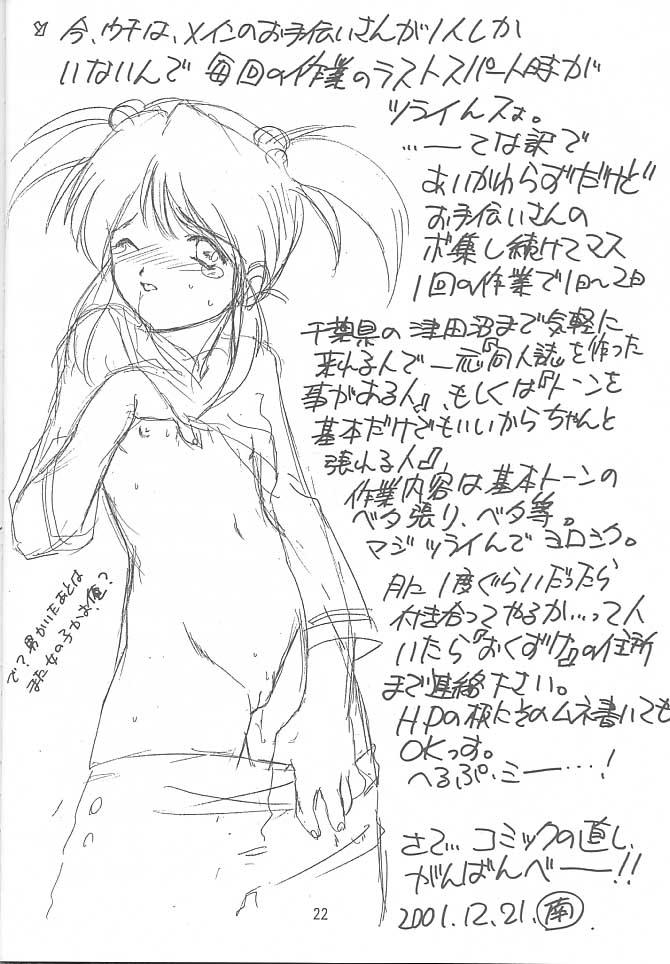 今、ウチは、メインのお手伝いさんが1人しか
いないんで 毎回の作業のラストスパート時が
ツライんスよ。
…ーてな訳で
あいかわらずだけど
お手伝いさんの
ボ集し続けてマス
1回の作業で1日〜2日
千葉県の津田沼まで気軽に
来れる人で一応『同人誌を作った
事がある人』、もしくは『トーンを
基本だけでもいいからちゃんと
張れる人』、
作業内容は基本トーンの
ベタ張り、ベタ等。
マジツライんでヨロシク。
月に1度ぐらいだったら
付き合ってやるか…って人
いたら『おくずけ』の住所
まで連絡下さい。
HPの板にそのムネ書いても
OKっす。
へるぷ・ミー…!
で?男かいたあとは
また女の子かお俺?
さて…コミックの直し、
がんばんべー!!
2001.12.21.南.
22